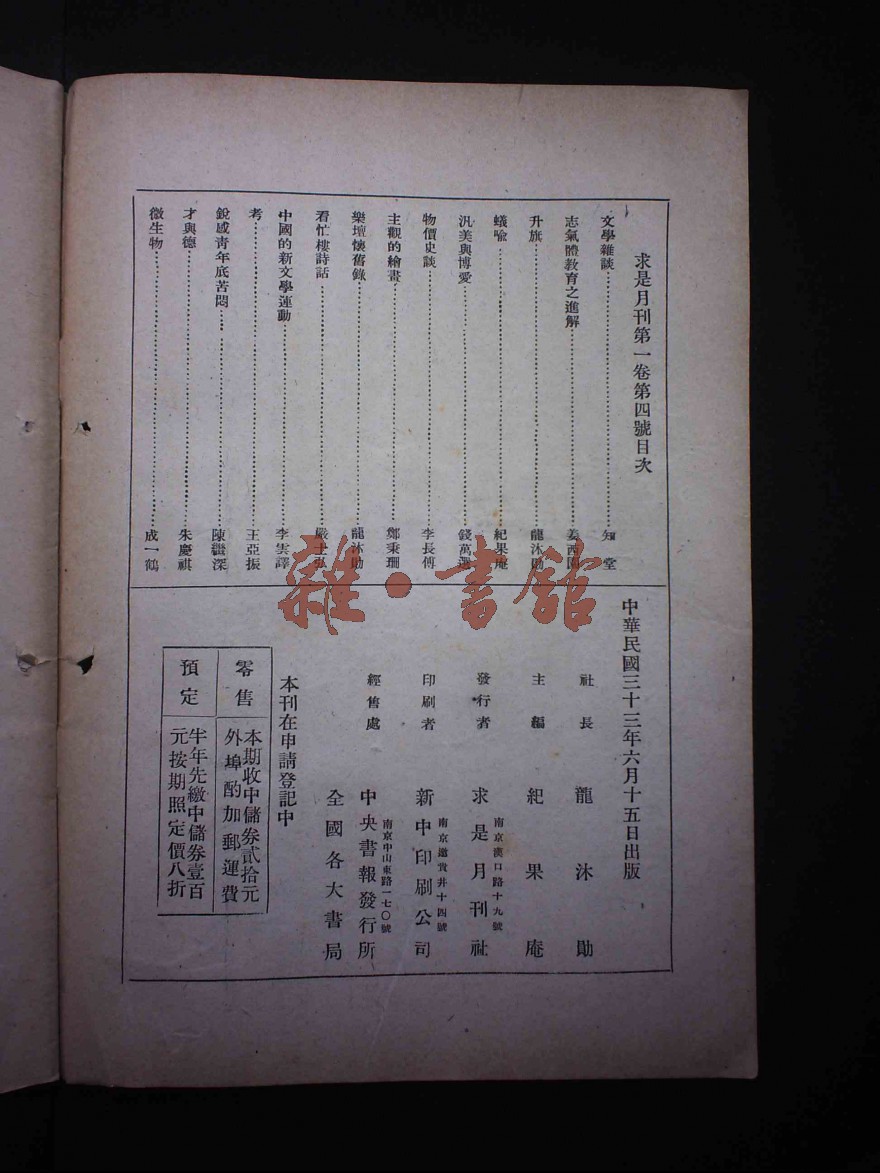 求是月刊第一卷第四號目次
文學雜談……知堂
志氣體教育之進解……姜西園
升旗……龍沐勛
蟻喩……紀果庵
汎美與博愛……錢萬選
物價史談……李長傅
主觀的繪畫……鄭秉珊
樂壇懷舊錄……龍沐勛
看忙樓詩話……嚴士弘
中國的新文學運動……李雲譯
考……王亞振
銳感靑年底苦悶……陳繼深
才與德……朱慶祺
微生物……成一鶴
中華民國三十三年六月十五日出版
社長 龍沐勛
主編 紀果庵
發行者 求是月刊社
南京漢口路十九號
印刷者 新中印刷公司
南京邀貴井十四號
經售處 中央書報發行所
南京中山東路一七〇號
全國各大書局
本刊在申請登記中
零售 本期收中儲券貳拾元
外埠酌加郵運費
預定 半年先繳中儲券壹百
元按期照定價八折
雜·書館